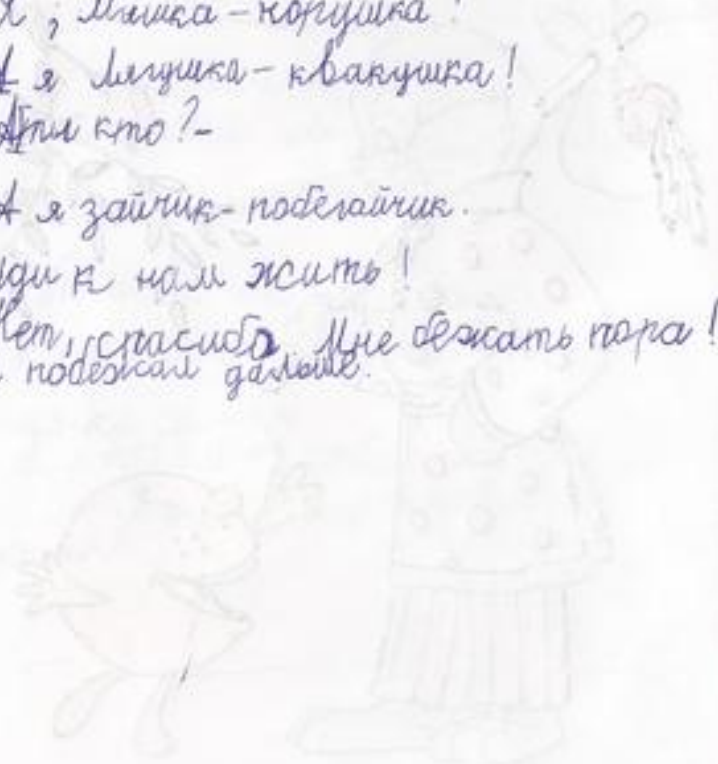 Я, Мышка-норушка!
А я Лягушка-квакушка!
А ты кто?-
А я зайчик-побегайчик.
Иди к нам жить!
Нет, спасибо. Мне бежать пора!
побежал дальше.